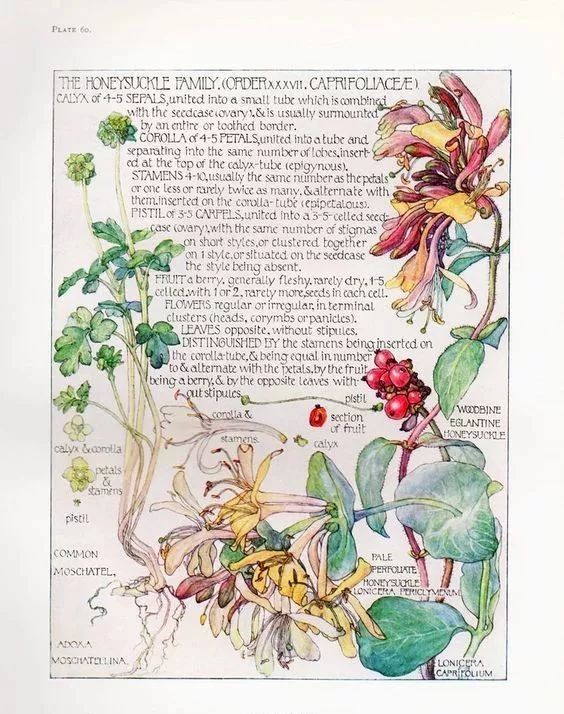 PLATE 60.
THE HONEYSUCKLE FAMILY. (ORDER XXXVII. CAPRIFOLIACEÆ)
CALYX of 4-5 SEPALS, united into a small tube which is combined
with the seedcase (ovary), & is usually surmounted
by an entire or toothed border.
COROLLA of 4-5 PETALS, united into a tube and
separating into the same number of lobes, insert-
ed at the top of the calyx-tube (epigynous).
STAMENS 4-10, usually the same number as the petals
or one less or rarely twice as many, & alternate with
them, inserted on the corolla-tube (epipetalous).
PISTIL of 3-5 CARPELS, united into a 3-5-celled seed-
case (ovary), with the same number of stigmas
on short styles, or clustered together
on 1 style, or situated on the seedcase
the style being absent.
FRUIT a berry, generally fleshy, rarely dry, 1-5
celled, with 1 or 2, rarely more, seeds in each cell.
FLOWERS regular or irregular, in terminal
clusters (heads, corymbs or panicles).
LEAVES opposite, without stipules.
DISTINGUISHED BY the stamens being inserted on
the corolla-tube, & being equal in number
to & alternate with the petals, by the fruit
being a berry, & by the opposite leaves with-
out stipules.
pistil
corolla &
stamens.
section
of fruit
calyx
WOODBINE
EGLANTINE
HONEYSUCKLE
calyx & corolla
petals
&
stamens
pistil
COMMON
MOSCHATEL,
PALE
PERFOLIATE
HONEYSUCKLE
LONICERA PERICLYMENUM
ADOXA
MOSCHATELLINA.
LONICERA
CAPRIFOLIUM